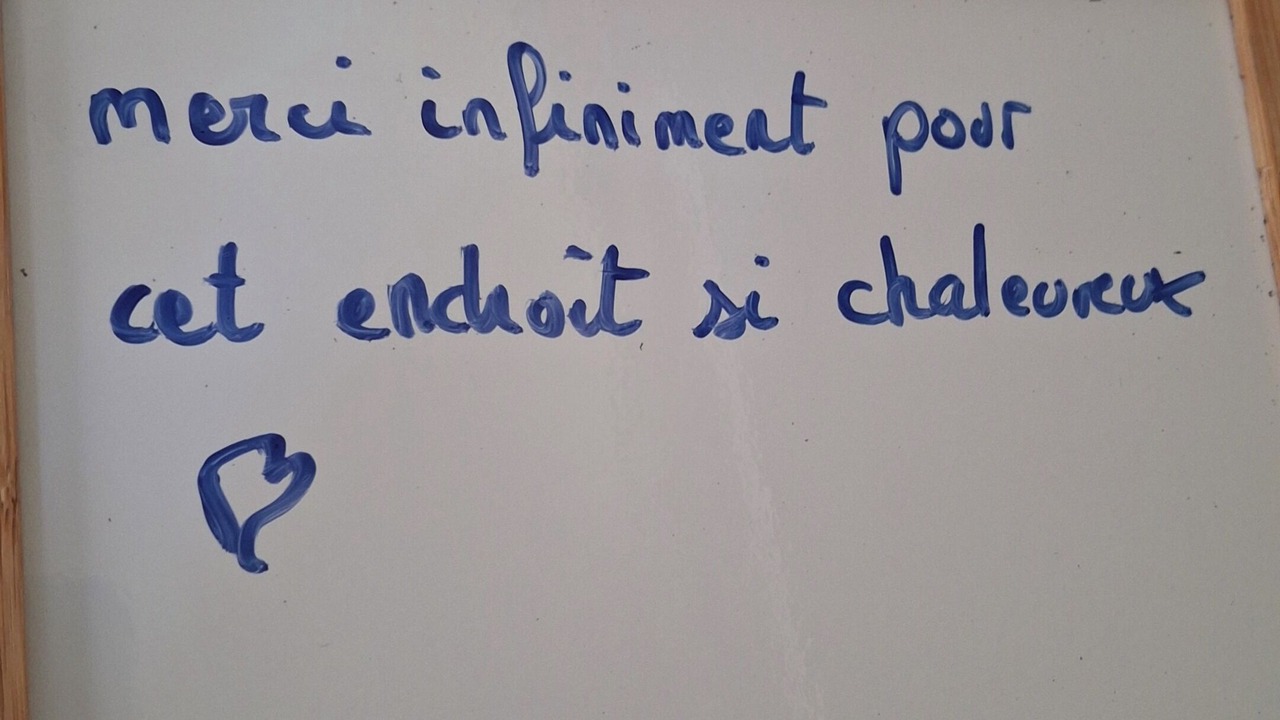 merci infiniment pour
cet endroit si chaleureux